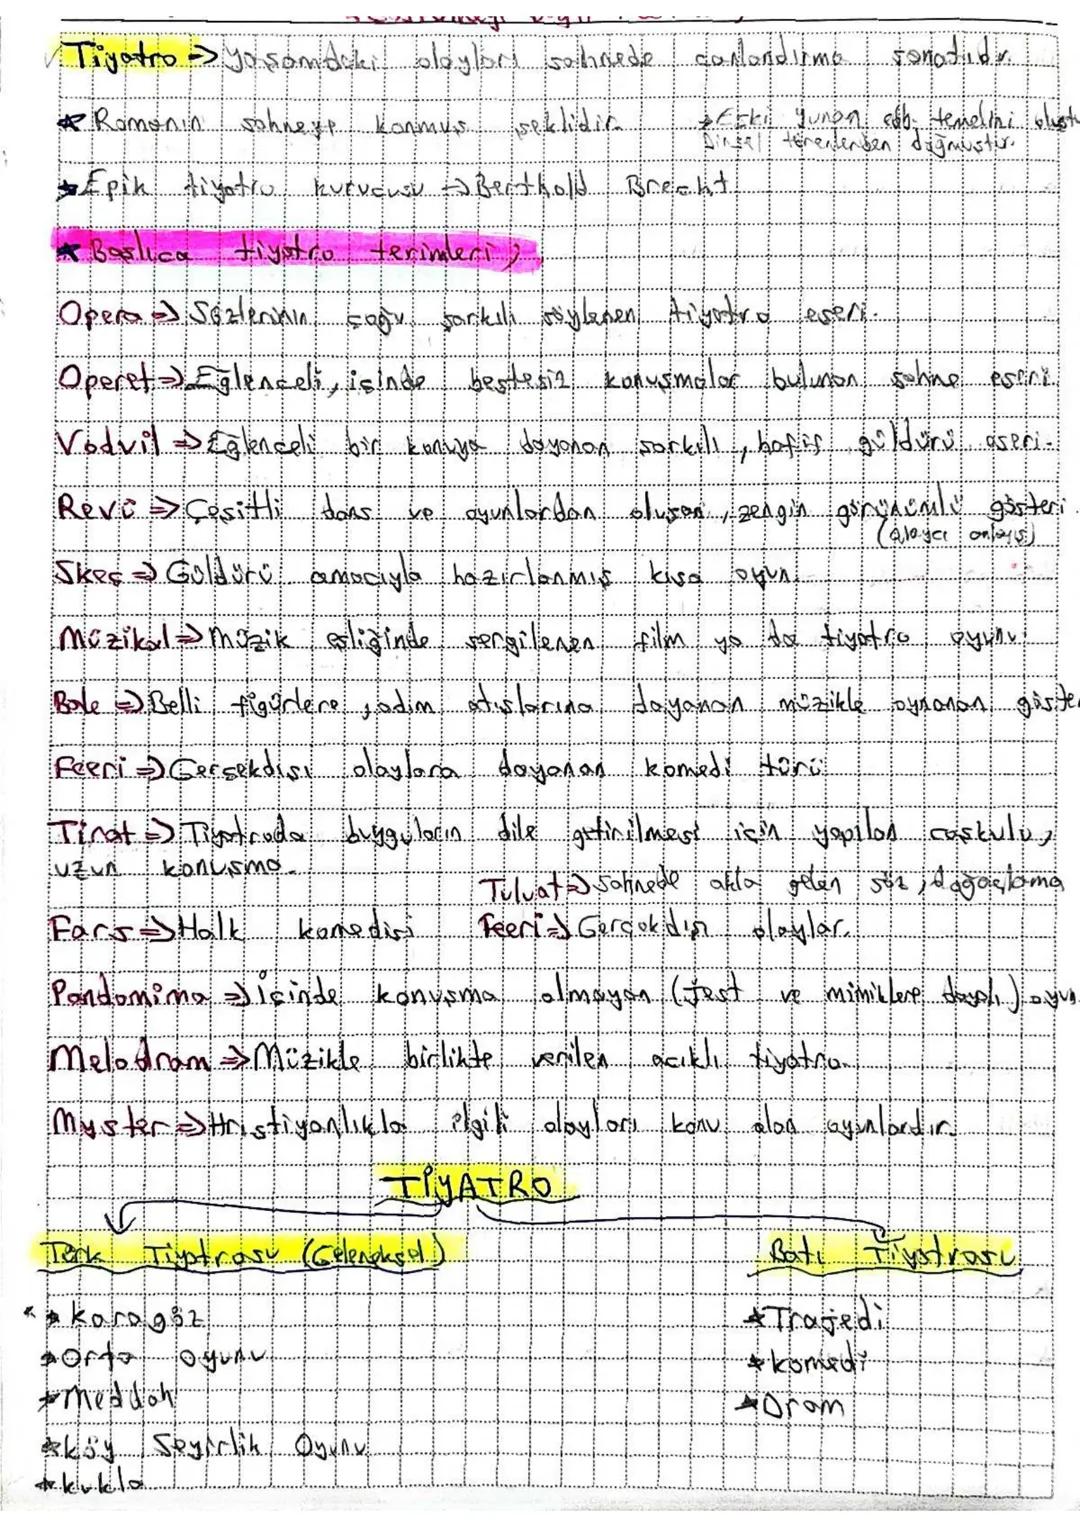 Tiyatro → Yaşamdaki olayları sahnede canlandırma sanatıdır.
* Romanın sahneye konmuş şeklidir. → Eski Yunan edb. temelini oluştu
Dinsel törenlerden doğmuştur.
* Epik tiyatro kurucusu → Berthold Brecht
* Başlıca tiyatro terimleri;
Opera ⇒ Sözlerinin çoğu şarkılı söylenen tiyatro eseri.
Operet ⇒ Eğlenceli, içinde bestesiz konuşmalar bulunan sahne eseri.
Vodvil ⇒ Eğlenceli bir konuya dayanan şarkılı, hafif güldürü eseri.
Revü ⇒ Çeşitli dans ve oyunlardan oluşan, zengin görünümlü gösteri.
(alaycı anlayış)
Skeç ⇒ Güldürü amacıyla hazırlanmış kısa oyun.
Müzikal ⇒ Müzik eşliğinde sergilenen film ya da tiyatro oyunu.
Bale ⇒ Belli figürlere, adım atışlarına dayanan müzikle oynanan göster
Feeri ⇒ Gerçekdışı olaylara dayanan komedi türü
Tirat ⇒ Tiyatroda duyguların dile getirilmesi için yapılan coşkulu,
uzun konuşma.
Tuluat ⇒ Sahnede akla gelen söz, doğaçlama
Fars ⇒ Halk komedisi Feeri ⇒ Gerçekdışı olaylar.
Pandomima ⇒ İçinde konuşma olmayan (jest ve mimiklere dayalı) oyun
Melodram ⇒ Müzikle birlikte verilen acıklı tiyatro.
Myster ⇒ Hristiyanlıkla ilgili olayları konu alan oyunlardır.
TİYATRO
Türk Tiyatrosu (Geleneksel) Batı Tiyatrosu
* Karagöz * Trajedi
* Orta Oyunu * Komedi
* Meddah * Dram
* Köy Seyirlik Oyunu
* Kukla